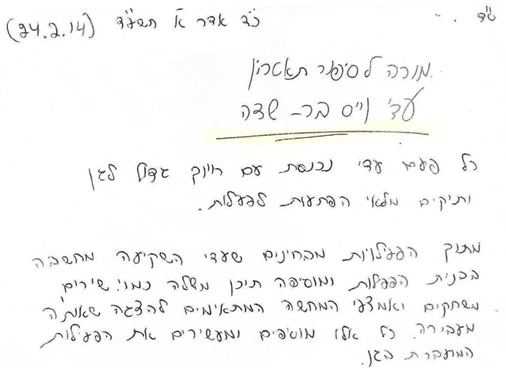 ס"ד
כ"ד אדר א' תשע"ד (24.2.14)
מורה לסיפור תאטרון
עדי וייס בר-שדה
כל פעם עדי נכנסת עם חיוך גדול לגן
ותיקים מלאי הפתעות לפעילות.
מתוך הפעילויות מבחינים שעדי השקיעה מחשבה
בבנית הפעילות ומוסיפה תוכן משלה כמו: שירים
משחקים ואמצעי המחשה המתאימים להצגה שאותה
מעבירה. כל אלו מוסיפים ומעשירים את הפעילות
המועברת בגן.